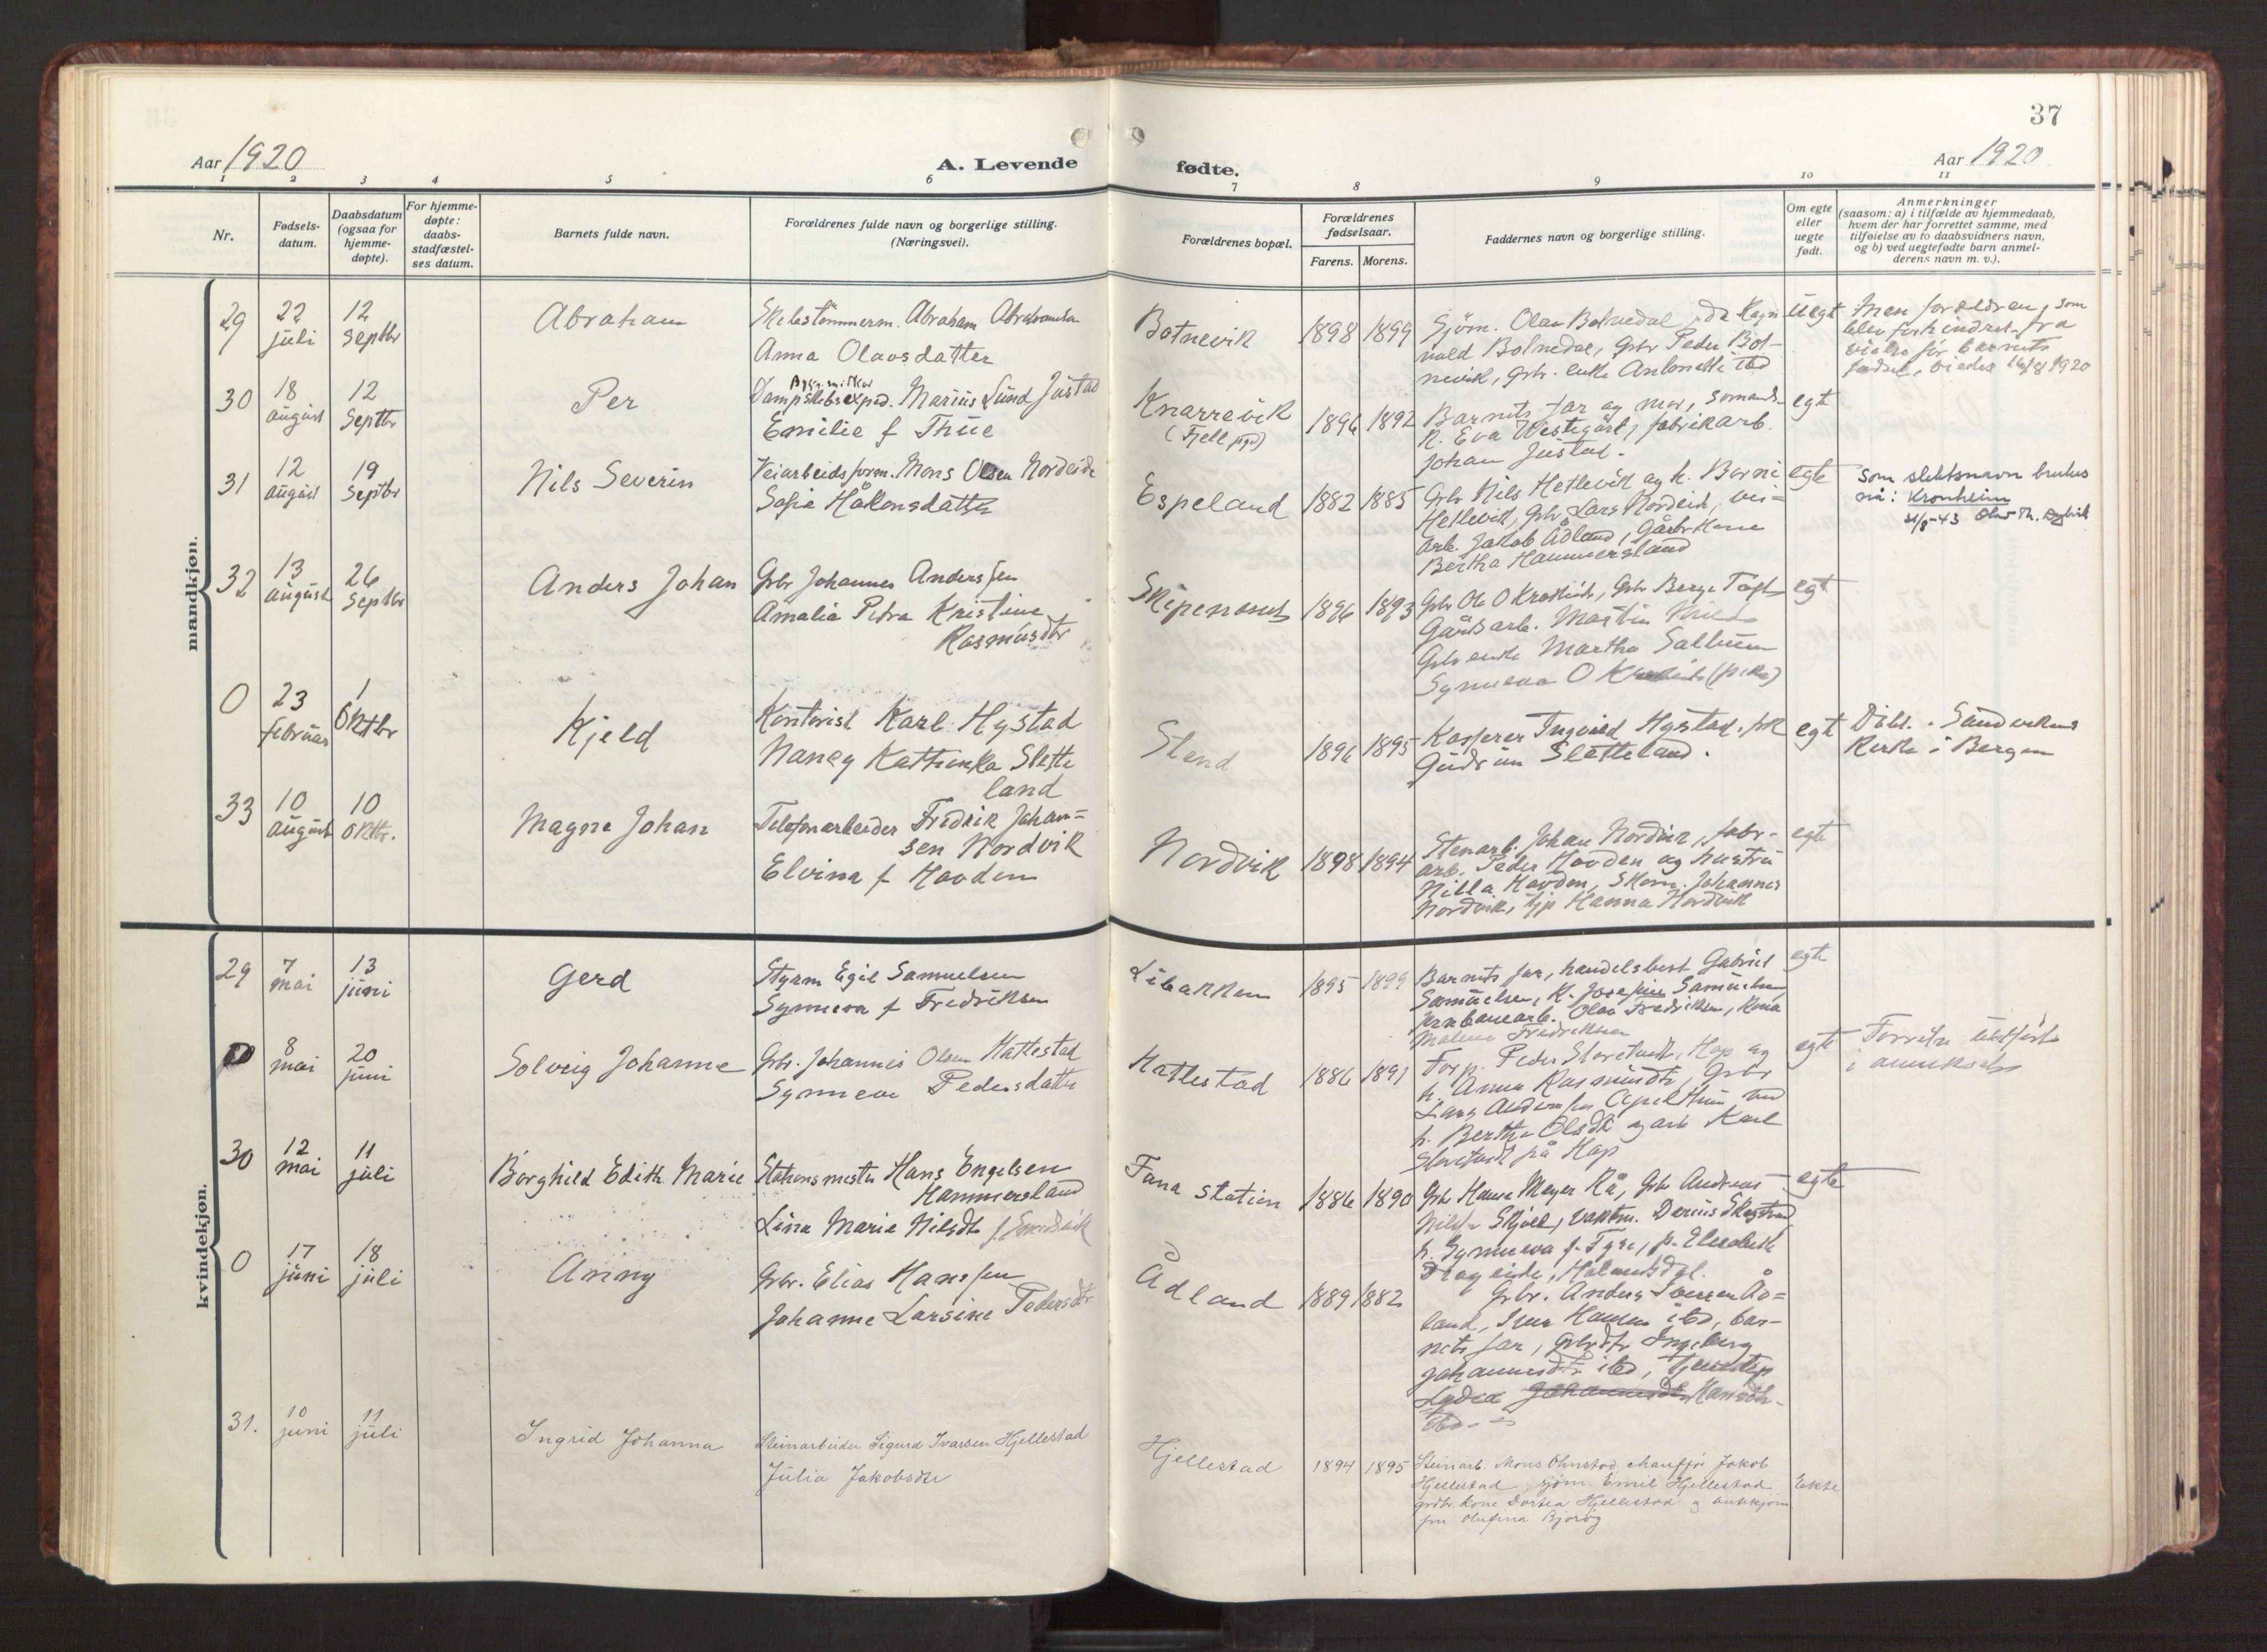 37
Aar 1920
A. Levende
fødte.
Aar 1920
1 2 3 4 5 6 7 8 9 10 11
Nr.
Fødsels-
datum.
Daabsdatum
(ogsaa for
hjemme-
døpte).
For hjemme-
døpte:
daabs-
stadfæstel-
ses datum.
Barnets fulde navn.
Forældrenes fulde navn og borgerlige stilling.
(Næringsvei).
Forældrenes bopæl.
Forældrenes
fødselsaar.
Farens. Morens.
Faddernes navn og borgerlige stilling.
Om egte
eller
uegte
født.
Anmerkninger
(saasom: a) i tilfælde av hjemmedaab,
hvem der har forrettet samme, med
tilføielse av to daabsvidners navn,
og b) ved uegtefødte barn anmel-
derens navn m. v.).
mandkjøn.
29
22
juli
12
Septbr
Abraham
Skibstømmerm. Abraham Abrahamsen
Anna Olavsdatter
Botnevik
1898 1899
Sjöm. Olav Botnedal,
vald Botnedal, Gbr Peder Bot-
nevik, Gbr. enke Antonette ibd
Uegt
Men forældrene, som
blev forhindret fra
vielse før barnets
fødsel, viedes 1920
30
18
august
12
Septbr
Per
Dampskibsexped. Marius Lund Justad
Emilie f Thue
Knarrevik
(Fjell pgd)
1896 1892
Barnets far og mor,
k. Eva Westegård, fabrikarb.
Johan Justad.
egte
31
12
august
19
Septbr
Nils Severin
Veiarbeidsform. Mons Olsen Nordeide
Sofie Håkonsdatter
Espeland
1882 1885
Gbr Nils Hetlevik og k. Berni
Hetlevik, Gbr Lars Nordeide, vei=
arb. Jakob Ådland, Gårdbr.kone
Bertha Hammersland
egte
Som slektsnavn brukes
nå: Kronheim
31/8-43
32
13
august
26
Septbr
Anders Johan
Gbr Johannes Anderssen
Amalia Petra Kristine
Rasmusdtr
Skipenesset
1896 1893
Gbr Ole O Krokeide, Gbr Berge
Gårdsarb. Martin
Gbr enke Martha
Synneva O Krokeide (pike)
egt
0
23
februar
1
Oktbr
Kjeld
Kontorist Karl Hystad
Nancy Kathinka Slette
land
Stend
1896 1895
Kasserer Ingvald Hystad, frk
Gudrun Sletteland.
egt
Døbt i Sandvikens
Kirke i Bergen
33
10
august
10
Oktbr.
Magne Johan
Telefonarbeider Fredrik Johan=
sen Nordvik
Elvina f Hovden
Nordvik
1898 1894
Stenarb. Johan Nordvik, fabr-
arb. Peder Hovden og hustru
Nilla Hovden, Skom. Johannes
Nordvik, tjp Hanna Nordvik
egte
kvindekjøn.
29
7
mai
13
juni
Gerd
Styrm Egil Samuelsen
Synneva f Fredriksen
Libakken
1895 1899
Barnets far, handelsbest Gabriel
Samuelsen, K. Josefine Samuelsen,
jernbanearb. Olav Fredriksen, Kona
Malene Fredriksen
egte
0
8
mai
20
juni
Solveig Johanne
Gbr. Johannes Olsen Hattestad
Synneva Pedersdatter
Hattestad
1886 1891
Forp. Peder Storetvedt, Hop og
h. Anna Rasmusdtr, Gbr
Lars Anderssen Apeltun og
h. Bertha Olsdtr og arb Karl
Storetvedt på Hop
egte
30
12
mai
11
juli
Borghild Edith Marie
Stationsmester Hans Engelsen
Hammersland
Lina Marie Nilsdtr
Fana station
1886 1890
Gbr Hans Meyer Rå, Gbr Andreas
Nilsen Skjold, vaktm. Darius Skogstrand
h. Synneva f. p. Elisabeth
egte
0
17
juni
18
juli
Anny
Gbr. Elias Hanssen
Johanne Larsine Pedersdtr
Ådland
1889 1882
Gbr. Anders Iversen Åd=
land, Iver Hansen ibd, bar-
nets far, Gbrdtr Ingeborg
Johannesdtr ibd, Tjenestep
Lydia Johannesdtr
31.
10
juni
11
juli
Ingrid Johanna
Steinarbeider Sigurd Ivarsen Hjellestad
Julia Jakobsdtr
Hjellestad
1894 1895
Steinarb. Mons Ohnstad, chauffør Jakob
Hjellestad, sjøm. Emil Hjellestad
grdbr. kone Dortea Hjellestad
Olufina Bjorøy
Eekte